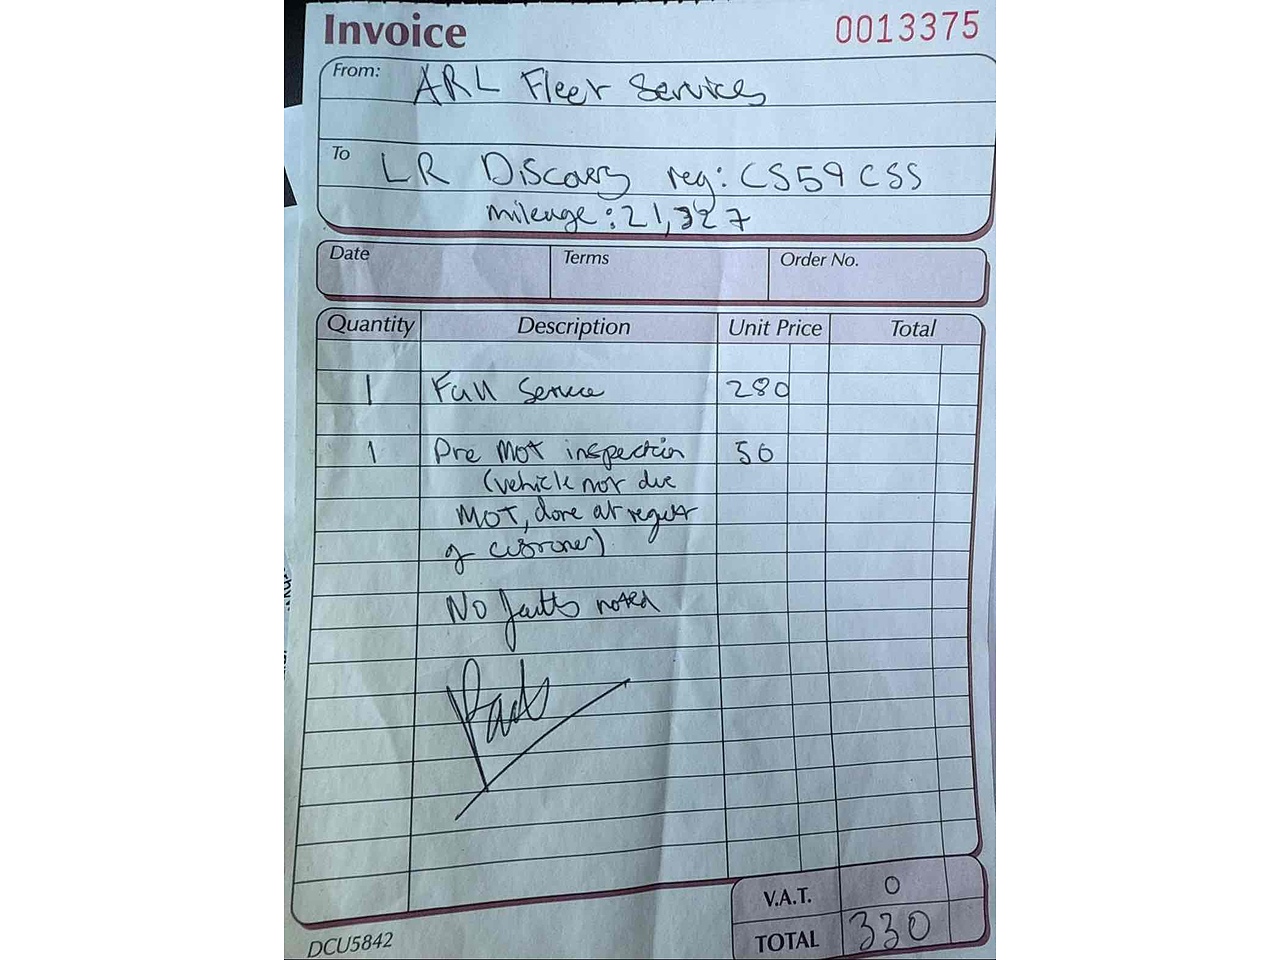 Invoice 0013375
From: ARL Fleet Services
To LR Discovery reg: CS59 CSS
mileage: 21,327
Date Terms Order No.
Quantity Description Unit Price Total
1 Full Service 280
1 Pre MOT inspection 50
(vehicle not due
MOT, done at request
of customer)
No faults noted
V.A.T. 0
TOTAL 330
DCU5842